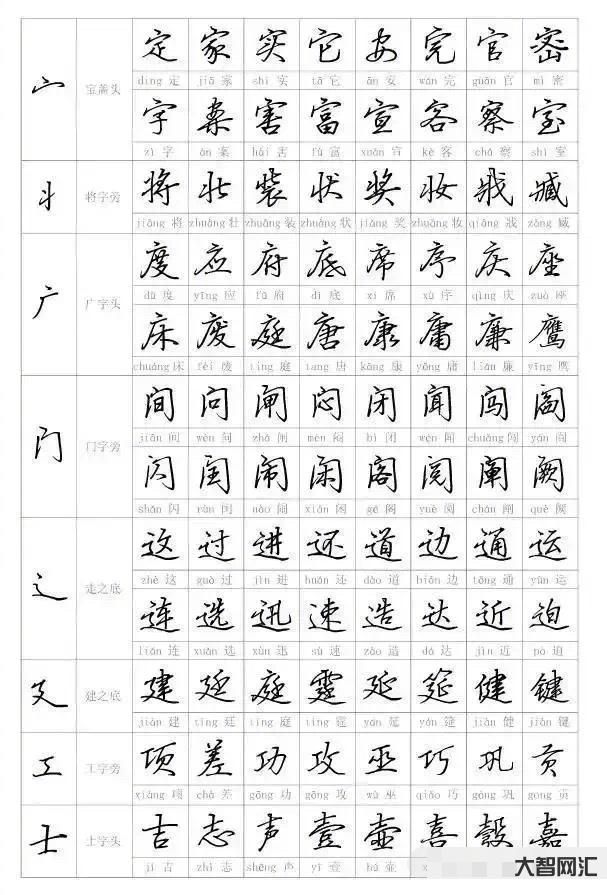 定 家 实 它 安 完 官 密
宀 宝盖头
dìng 定 jiā 家 shí 实 tā 它 ān 安 wán 完 guān 官 mì 密
字 案 害 富 宣 客 察 室
zì 字 àn 案 hài 害 fù 富 xuān 宣 kè 客 chá 察 shì 室
丬 将字旁 将 壮 装 状 奖 妆 戕 臧
jiāng 将 zhuàng 壮 zhuāng 装 zhuàng 状 jiǎng 奖 zhuāng 妆 qiāng 戕 zāng 臧
度 应 府 底 席 序 庆 座
广 广字头
dù 度 yīng 应 fǔ 府 dǐ 底 xí 席 xù 序 qìng 庆 zuò 座
床 废 庭 唐 康 庸 廉 鹰
chuáng 床 fèi 废 tíng 庭 táng 唐 kāng 康 yōng 庸 lián 廉 yīng 鹰
间 问 闸 闷 闭 闻 闯 阎
门 门字旁
jiān 间 wèn 问 zhá 闸 mèn 闷 bì 闭 wén 闻 chuǎng 闯 yán 阎
闪 闰 闹 闲 阁 阅 阐 阙
shǎn 闪 rùn 闰 nào 闹 xián 闲 gé 阁 yuè 阅 chǎn 阐 què 阙
这 过 进 还 道 边 通 运
辶 走之底
zhè 这 guò 过 jìn 进 huán 还 dào 道 biān 边 tōng 通 yùn 运
连 选 迅 速 造 达 近 迫
lián 连 xuǎn 选 xùn 迅 sù 速 zào 造 dá 达 jìn 近 pò 迫
廴 建之底 建 廷 庭 霆 延 筵 健 键
jiàn 建 tíng 廷 tíng 庭 tíng 霆 yán 延 yán 筵 jiàn 健 jiàn 键
工 工字旁 项 差 功 攻 巫 巧 巩 贡
xiàng 项 chà 差 gōng 功 gōng 攻 wū 巫 qiǎo 巧 gǒng 巩 gòng 贡
士 士字头 吉 志 声 壹 壶 喜 嘉
jí 吉 zhì 志 shēng 声 yī 壹 hú 壶
大智网汇